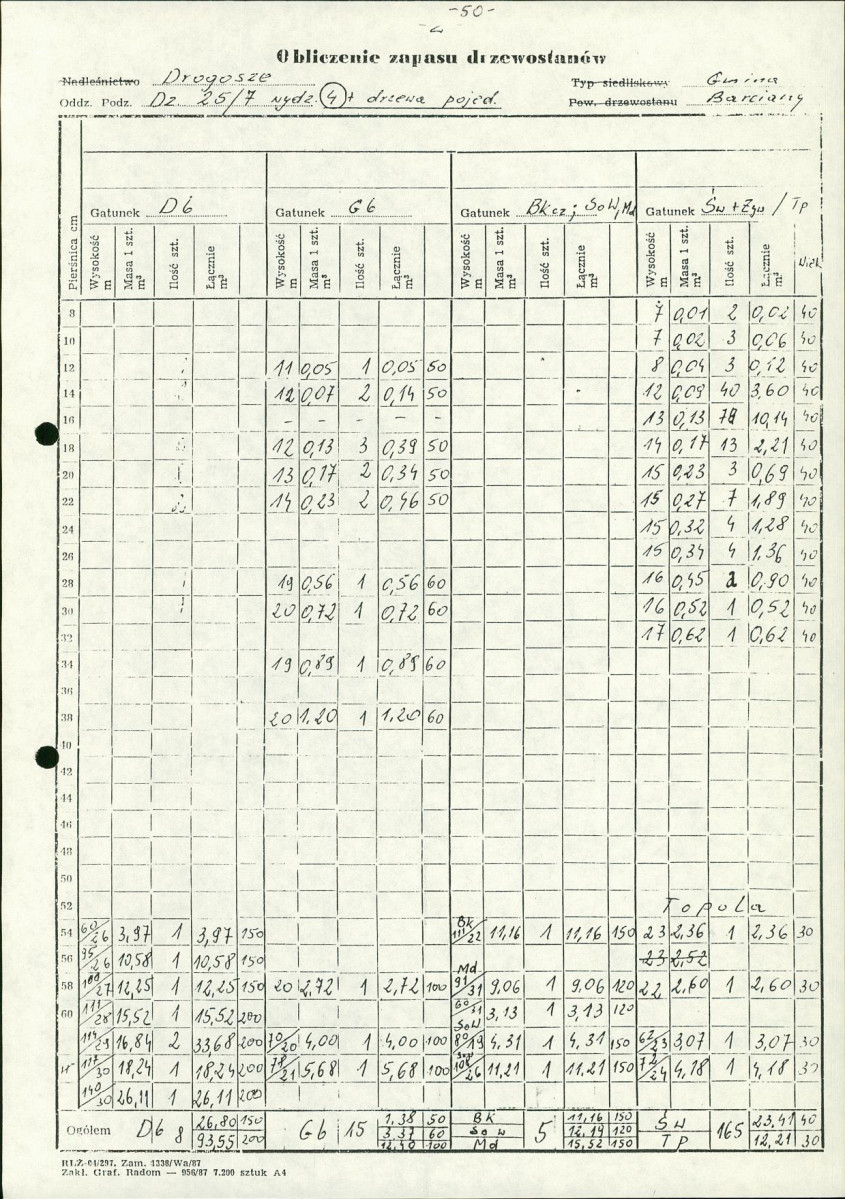 -50-
Obliczenie zapasu drzewostanów
Nadleśnictwo Drogosze Typ siedliskowy Gmina
Oddz. Podz. Dz 25/7 wydz. 4 + drzewa pojed. Pow. drzewostanu Barciany
Gatunek Db Gatunek Gb Gatunek Bk cz; SoW, Md Gatunek Św + Żyw / Tp
Pierśnica cm Wysokość m Masa 1 szt. m³ Ilość szt. Łącznie m³ Wysokość m Masa 1 szt. m³ Ilość szt. Łącznie m³ Wysokość m Masa 1 szt. m³ Ilość szt. Łącznie m³ Wysokość m Masa 1 szt. m³ Ilość szt. Łącznie m³ Wiek
8 7 0,01 2 0,02 40
10 7 0,02 3 0,06 40
12 11 0,05 1 0,05 50 8 0,04 3 0,12 40
14 12 0,07 2 0,14 50 12 0,09 40 3,60 40
16 - - - - - 13 0,13 78 10,14 40
18 12 0,13 3 0,39 50 14 0,17 13 2,21 40
20 13 0,17 2 0,34 50 15 0,23 3 0,69 40
22 14 0,23 2 0,46 50 15 0,27 7 1,89 40
24 15 0,32 4 1,28 40
26 15 0,34 4 1,36 40
28 19 0,56 1 0,56 60 16 0,45 2 0,90 40
30 20 0,72 1 0,72 60 16 0,52 1 0,52 40
32 17 0,62 1 0,62 40
34 19 0,89 1 0,89 60
36
38 20 1,20 1 1,20 60
40
42
44
46
48
50
52 Topola
54 60/26 3,97 1 3,97 150 Bk 111/22 11,16 1 11,16 150 23 2,36 1 2,36 30
56 95/26 10,58 1 10,58 150 23 2,52
58 100/27 12,25 1 12,25 150 20 2,72 1 2,72 100 Md 91/31 9,06 1 9,06 120 22 2,60 1 2,60 30
60 111/28 15,52 1 15,52 200 60/31 3,13 1 3,13 120
114/29 16,84 2 33,68 200 70/20 4,00 1 4,00 100 SoW 80/19 4,31 1 4,31 150 62/23 3,07 1 3,07 30
117/30 18,24 1 18,24 200 78/21 5,68 1 5,68 100 SoW 108/26 11,21 1 11,21 150 72/24 4,18 1 4,18 30
140/30 26,11 1 26,11 200
Ogółem Db 8 26,80 150 Gb 15 1,38 50 Bk 5 11,16 150 Św 165 23,41 40
93,55 200 3,37 60 Sow 12,19 120 TP 12,21 30
12,40 100 Md 15,52 150
RLŻ-04/297. Zam. 1338/Wa/87
Zakł. Graf. Radom — 956/87 7.200 sztuk A4